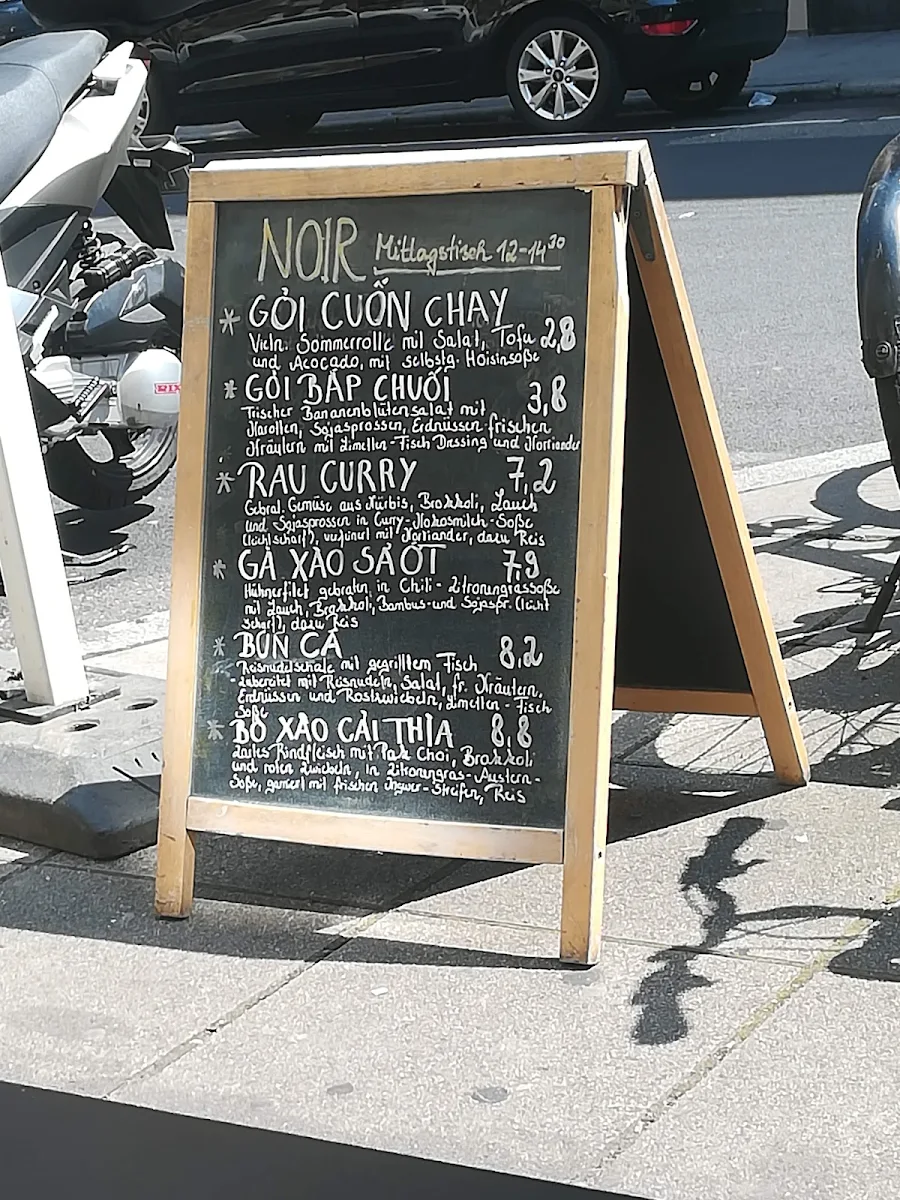 NOIR Mittagstisch 12-14³⁰
* GỎI CUỐN CHAY
Vietn. Sommerrolle mit Salat, Tofu 2,8
und Avocado, mit selbstg. Hoisinsoße
* GỎI BẮP CHUỐI 3,8
Frischer Bananenblütensalat mit
Karotten, Sojasprossen, Erdnüssen frischen
Kräutern mit Limetten-Fisch Dressing und Korriander
* RAU CURRY 7,2
Gebrat. Gemüse aus Kürbis, Brokkoli, Lauch
und Sojasprossen in Curry-Kokosmilch-Soße
(leicht scharf), verfeinert mit Korriander, dazu Reis
* GÀ XÀO SẢ ỚT 7,9
Hühnerfilet gebraten in Chili-Zitronengrassoße
mit Lauch, Brokkoli, Bambus- und Sojaspr. (leicht
scharf), dazu Reis
* BÚN CÁ 8,2
Reisnudelschale mit gegrilltem Fisch
-zubereitet mit Reisnudeln, Salat, fr. Kräutern,
Erdnüssen und Röstzwiebeln, Limetten-Fisch
Soße
* BÒ XÀO CẢI THÌA 8,8
Zartes Rindfleisch mit Pak Choi, Brokkoli
und roten Zwiebeln, in Zitronengras-Austern-
Soße, garniert mit frischen Ingwer-Streifen, Reis
RIX